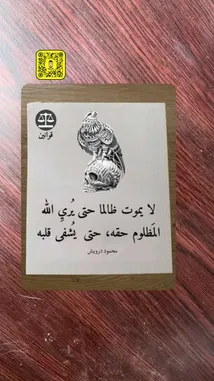 قوانين
لا يموت ظالما حتى يُري الله
المَظلوم حقه، حتى يُشفى قلبه
محمود درويش